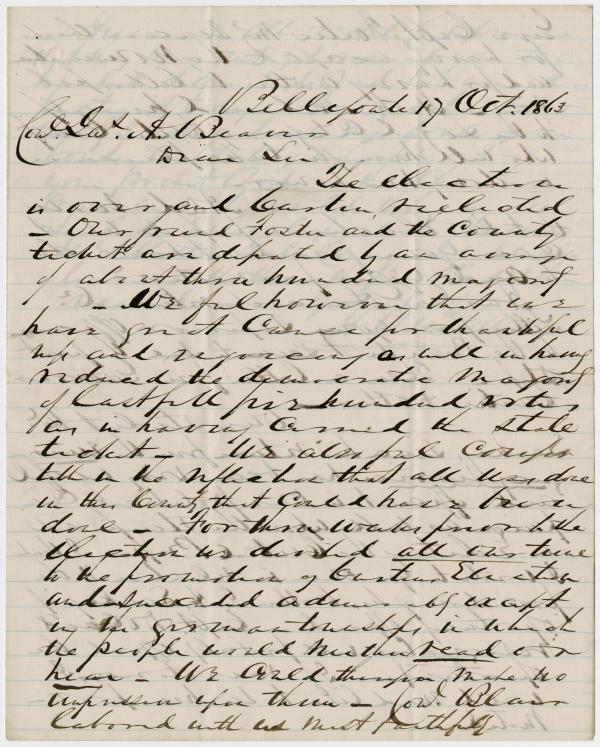 Bellefonte 17 Oct. 1863
Col. Jas. A. Beaver
Dear Sir
The election
is over and Curtin reelected
— Our friend Foster and the County
ticket are defeated by an average
of about three hundred majority
— We feel however that we
have great Cause for thankful
ness and rejoicing as well in having
reduced the democratic Majority
of last fall five hundred votes
as in having carried the State
ticket — We also feel comfor
table in the reflection that all was done
in this County that Could have been
done — For three weeks prior to the
election we devoted all our time
to the promotion of Curtins Election
and succeeded admirably except
in the german townships in which
the people would neither read or
hear — We could therefore make no
impression upon them — Col. Blair
labored with us most faithfully